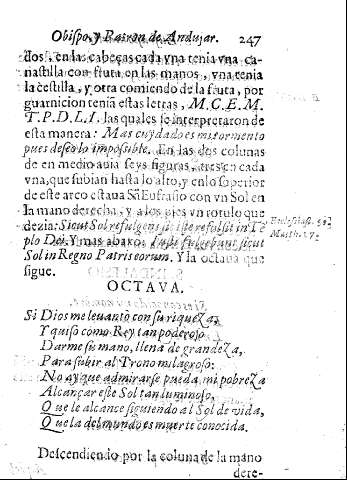 Obispo, y Patron de Andujar. 247
dos, en las cabeças cada vna tenia vna ca-
nastilla con fruta en las manos, vna tenia
la cestilla, y otra comiendo de la fruta, por
guarnicion tenia estas letras, M. C. E. M.
T. P. D. L. I. las quales se interpretaron de
esta manera: Mas cuydado es mi tormento
pues deseo lo imposible. En las dos colunas
de en medio auia seys figuras, tres en cada
vna, que subian hasta lo alto, y en lo superior
de este arco estaua S. Eufrasio con vn Sol en
la mano derecha, y a los pies vn rotulo que
dezia: Sicut Sol refulgens sic iste refulsit in Tẽ
plo Dei. Y mas abaxo: Iusti fulgebunt sicut
Sol in Regno Patris eorum. Y la octaua que
sigue.
Ecclesiast. 50.
Matth. 17.
OCTAVA.
Si Dios me leuantò con su riqueza,
Y quiso como Rey tan poderoso
Darme su mano, llena de grandeza,
Para subir al Trono milagroso:
No ay que admirarse pueda mi pobreza
Alcançar este Sol tan luminoso,
Que le alcance siguiendo al Sol de vida,
Que la del mundo es muerte conocida.
Descendiendo por la coluna de la mano
dere-